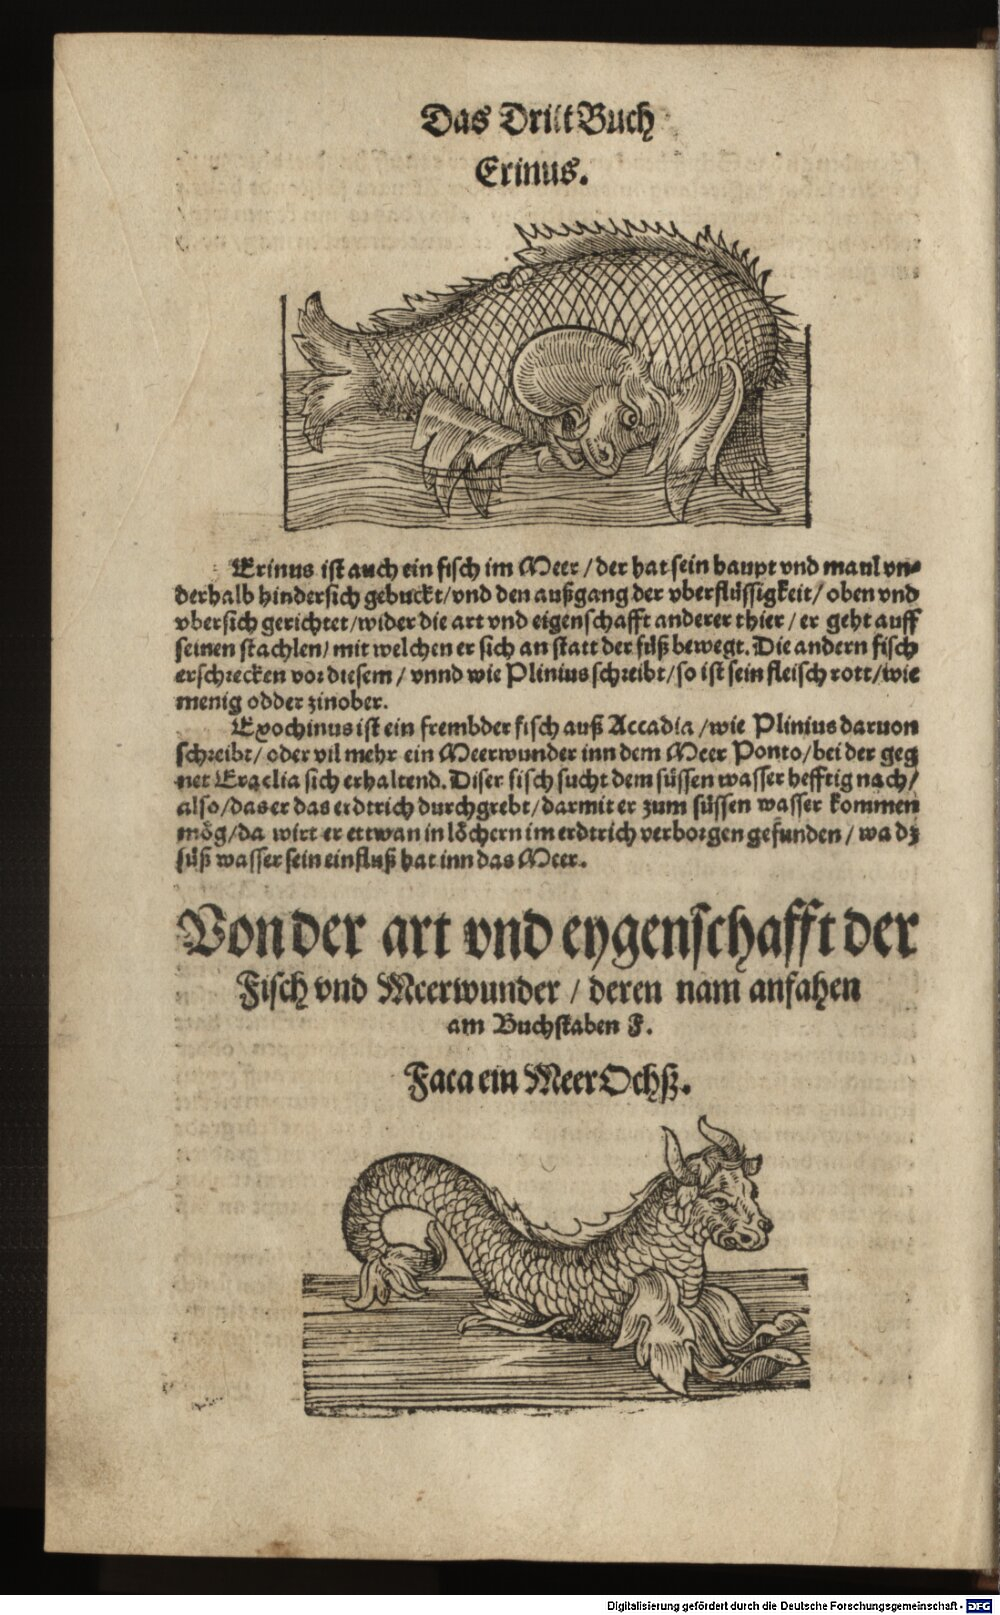 Das Dritt Buch
Erinus.
Erinus ist auch ein fisch im Meer / der hat sein haupt vnd maul vn-
derhalb hindersich gebuckt / vnd den außgang der vberflüssigkeit / oben vnd
vbersich gerichtet / wider die art vnd eigenschafft anderer thier / er geht auff
seinen stachlen / mit welchen er sich an statt der füß bewegt. Die andern fisch
erschrecken vor diesem / vnnd wie Plinius schreibt / so ist sein fleisch rott / wie
menig odder zinober.
Exochinus ist ein frembder fisch auß Accadia / wie Plinius daruon
schreibt / oder vil mehr ein Meerwunder inn dem Meer Ponto / bei der geg
net Eraclia sich erhaltend. Diser fisch sucht dem süssen wasser hefftig nach /
also / das er das erdtrich durchgrebt / darmit er zum süssen wasser kommen
mög / da wirt er ettwan in löchern im erdtrich verborgen gefunden / wa dz
süß wasser sein einfluß hat inn das Meer.
Von der art vnd eygenschafft der
Fisch vnd Meerwunder / deren nam anfahen
am Buchstaben F.
Faca ein Meer Ochß.
Digitalisierung gefördert durch die Deutsche Forschungsgemeinschaft - DFG